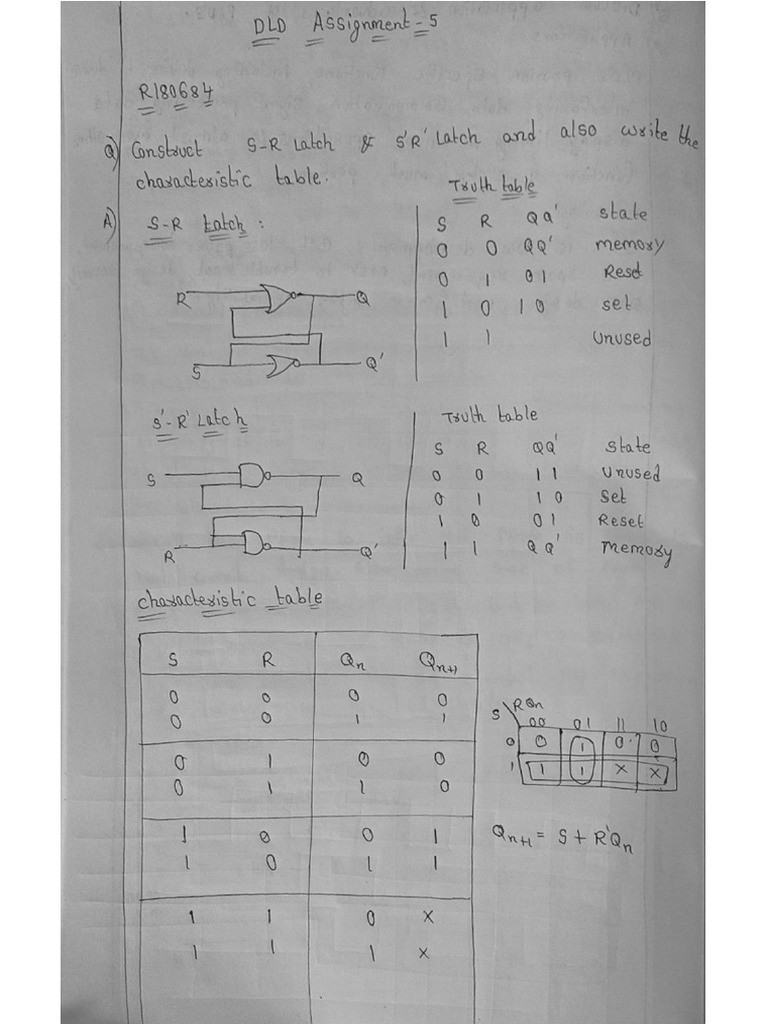 DLD Assignment-5
R180684
Q) Construct S-R Latch & S'R' Latch and also write the
characteristic table.
A) S-R Latch :
Truth table
S R QQ' state
0 0 QQ' memory
0 1 01 Reset
1 0 10 set
1 1 Unused
R Q
S Q'
S'-R' Latch
Truth table
S R QQ' State
0 0 11 Unused
0 1 10 Set
1 0 01 Reset
1 1 QQ' memory
S Q
R Q'
characteristic table
S R Qn Qn+1
0 0 0 0
0 0 1 1
0 1 0 0
0 1 1 0
1 0 0 1
1 0 1 1
1 1 0 x
1 1 1 x
S RQn
00 01 11 10
0 0 1 0 0
1 1 1 x x
Qn+1 = S + R'Qn